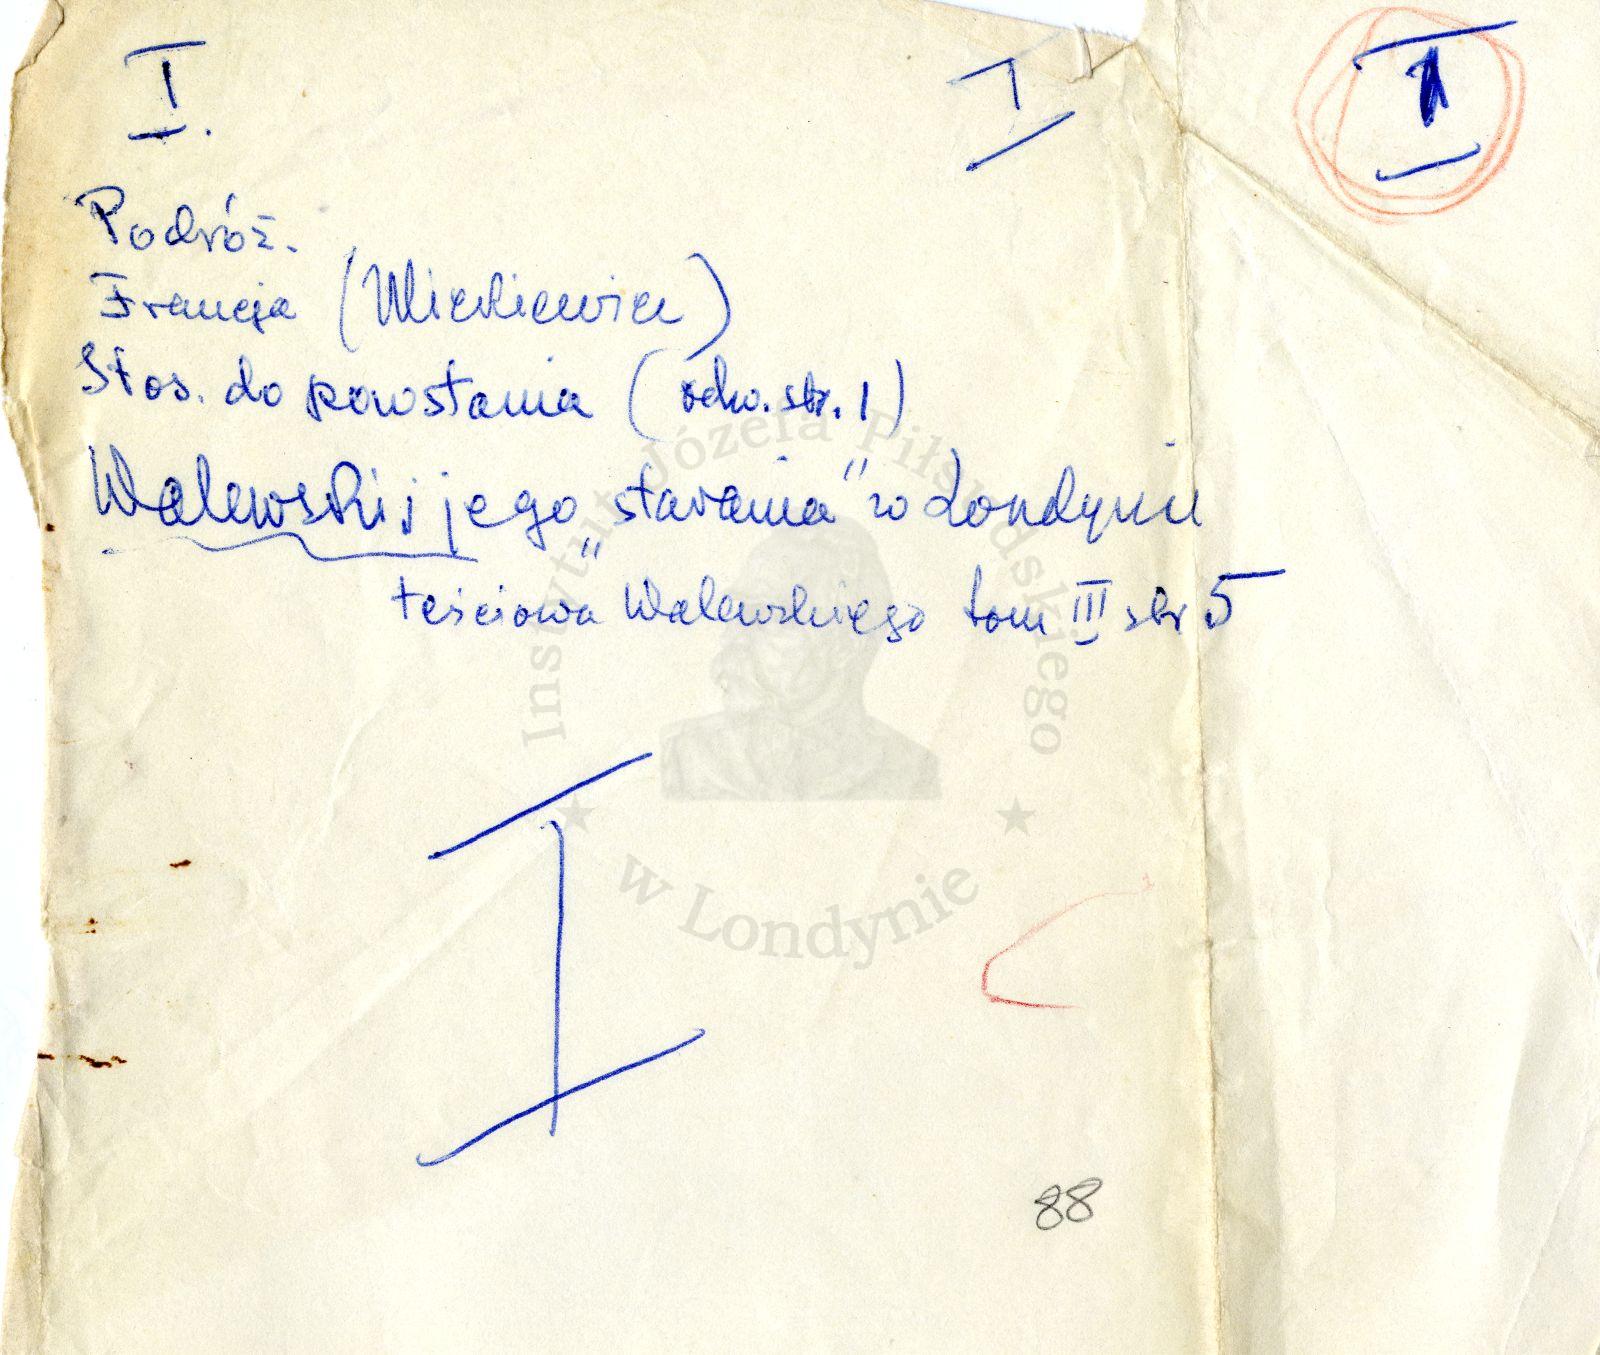 I. I I
Podróż.
Francja (Mickiewicz)
Stos. do powstania (odw. str. 1)
Walewski i jego „starania” w Londynie
teściowa Walewskiego tom III str 5
I
88
Instytut Józefa Piłsudskiego
w Londynie